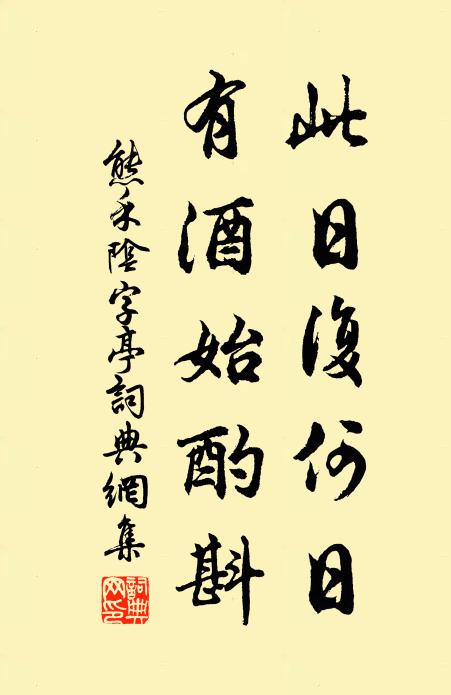 此日復何日
有酒始酌斟
熊禾陰字亭詞典網集
詞典網印